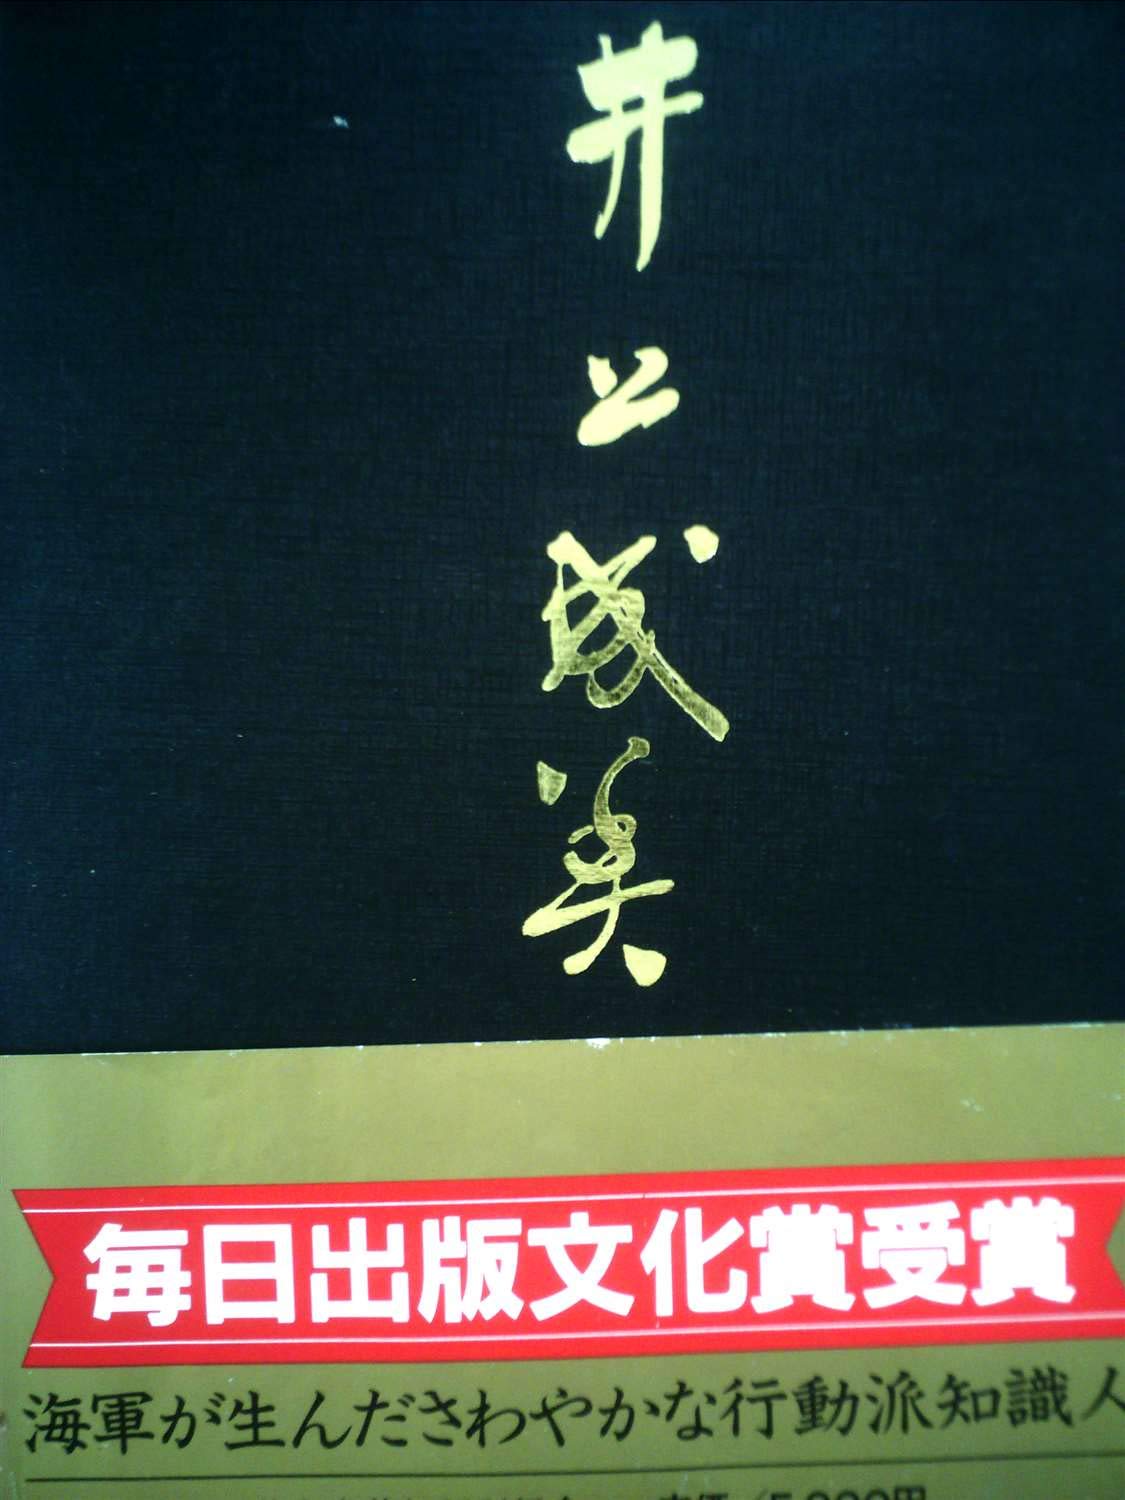 井上成美
毎日出版文化賞受賞
海軍が生んださわやかな行動派知識人